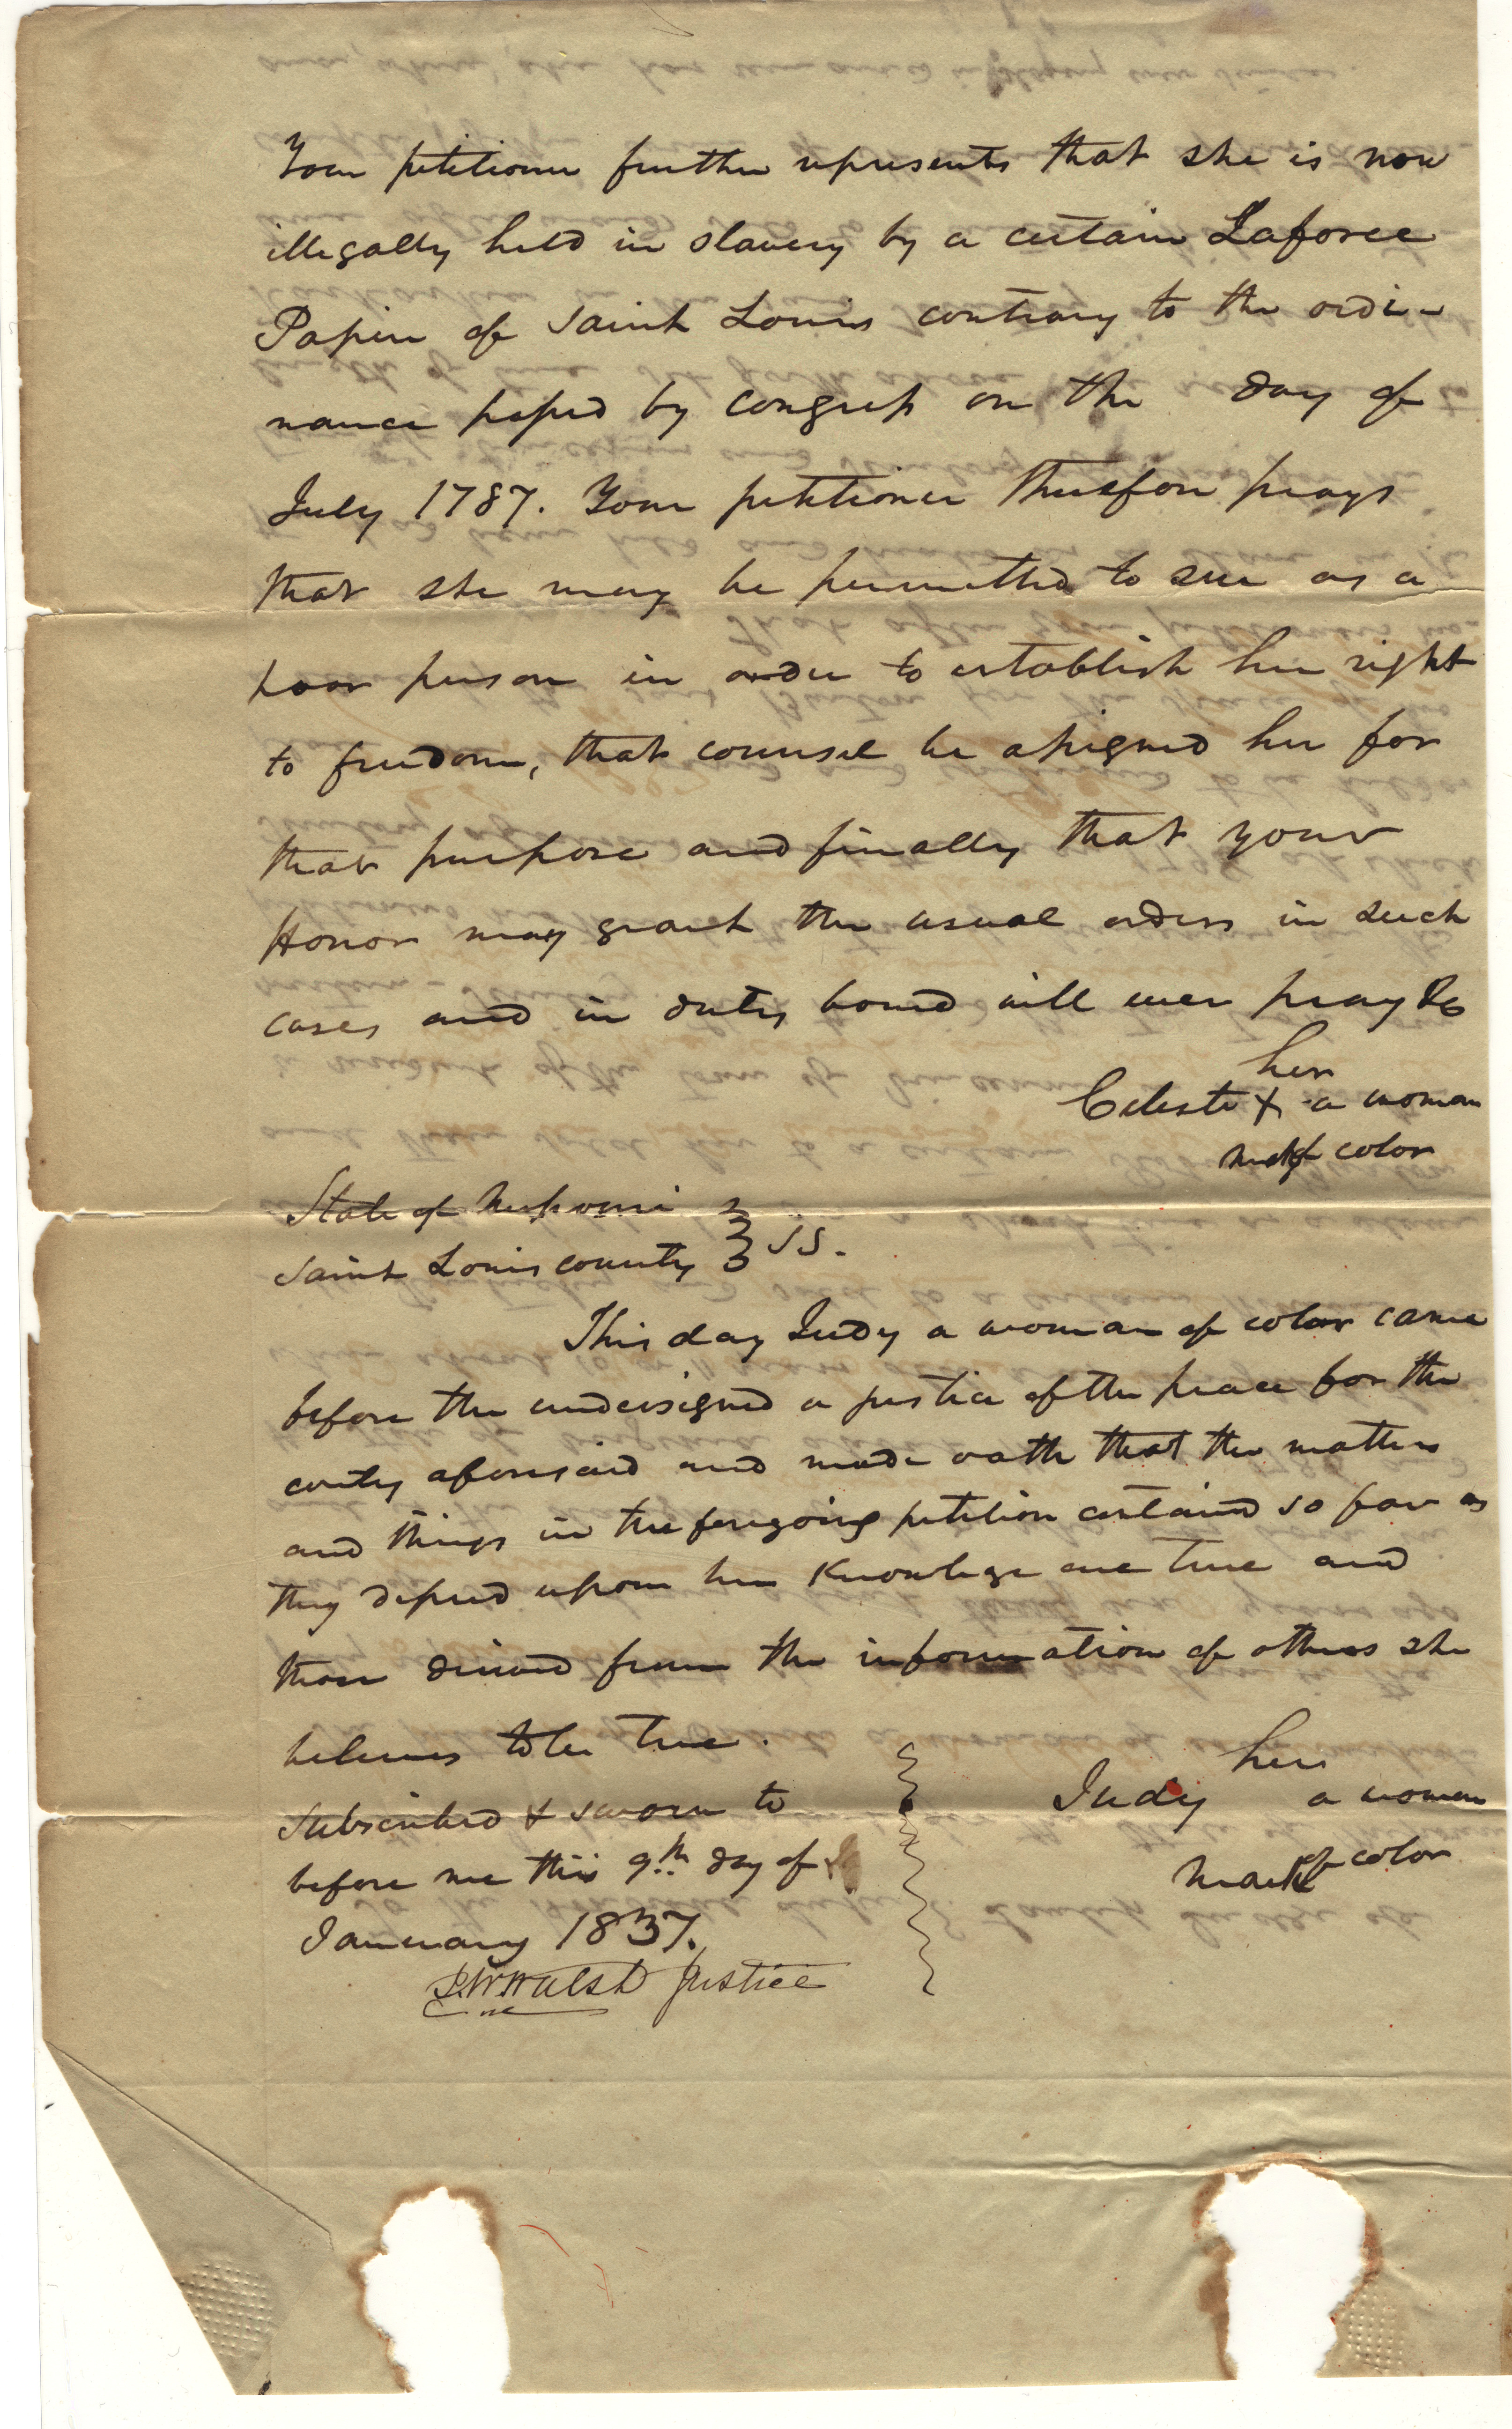 Your petitioner further represents that she is now
illegally held in slavery by a certain Laforce
Papin of Saint Louis contrary to the ordi-
nance passed by congress on the day of
July 1787. Your petitioner therefore prays
that she may be permitted to sue as a
poor person in order to establish her right
to freedom, that counsel be assigned her for
that purpose and finally that your
Honor may grant the usual orders in such
cases and in duty bound will ever pray &c
her
Celeste X a woman
mark of color
State of Missouri
Saint Louis county } SS.
This day Judy a woman of color came
before the undersigned a justice of the peace for the
conty aforesaid and made oath that the matters
and things in the foregoing petition contained so far as
they depend upon her Knowlege are true and
those derived from the information of others she
believes to be true.
Subscribed & sworn to
before me this 9th day of
January 1837.
her
Judy a woman
mark of color
Walsh Justice